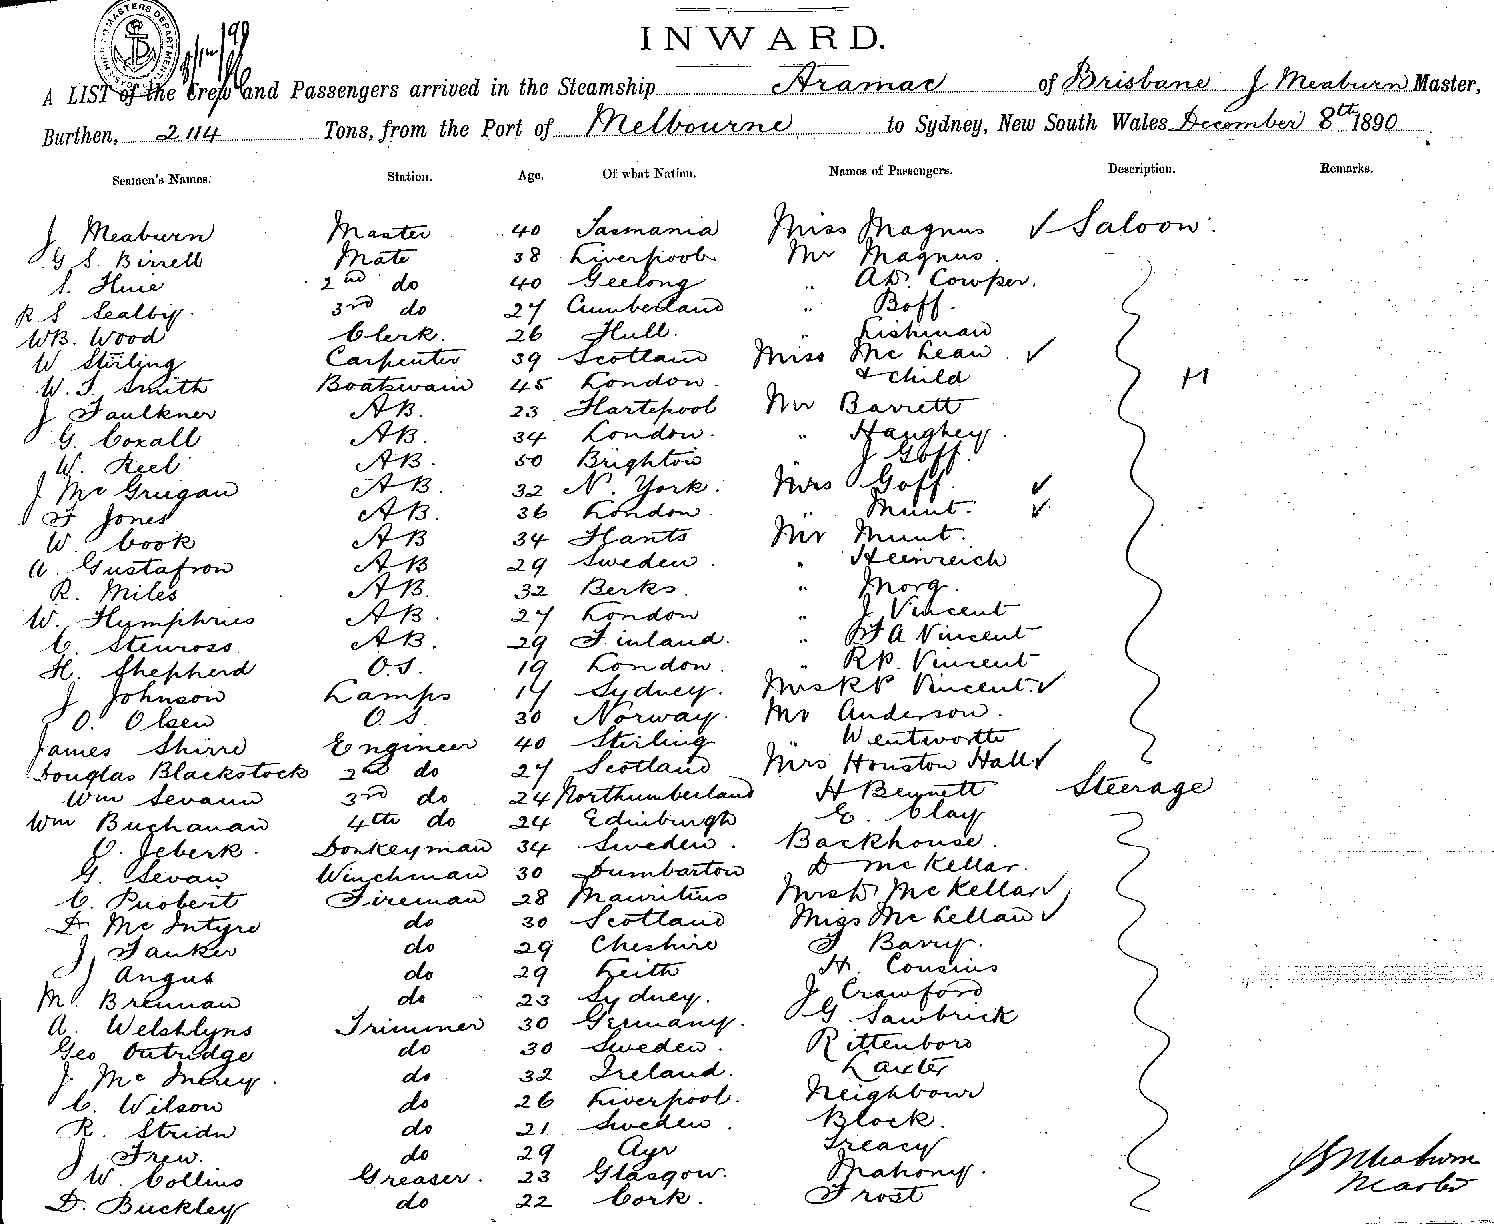 INWARD.
A LIST of the Crew and Passengers arrived in the Steamship Aramac of Brisbane J Meaburn Master,
Burthen, 2114 Tons, from the Port of Melbourne to Sydney, New South Wales December 8th 1890
Seamen's Names. Station. Age. Of what Nation. Names of Passengers. Description. Remarks.
J Meaburn Master 40 Tasmania Miss Magnus ✓ Saloon.
G S. Birrell Mate 38 Liverpool Mr Magnus.
S. Huie 2nd do 40 Geelong " AD. Cowper.
R S Sealby. 3rd do 27 Cumberland " Boff.
WB. Wood Clerk. 26 Hull. " Lishman
W Stirling Carpenter 39 Scotland Miss McLean ✓
W. T. Smith Boatswain 45 London. & child H
J Faulkner AB. 23 Hartepool Mr Barrett
G. Coxall AB. 34 London. " Haughey.
W. Keel AB. 50 Brighton " J Goff.
J McGrugan AB. 32 N. York. Mrs Goff. ✓
F Jones AB. 36 London. " Munt. ✓
W. Cook AB 34 Hants Mr Munt.
A. Gustafson AB 29 Sweden. " Heinreich
R. Miles AB. 32 Berks. " Morg.
W. Humphries AB. 27 London " J Vincent
C. Stenross AB. 29 Finland. " F A Vincent
H. Shepherd O.S. 19 London. " RP. Vincent
J Johnson Lamps 17 Sydney. Mrs RP Vincent. ✓
O. Olsen O.S. 30 Norway. Mr Anderson.
James Shirre Engineer 40 Stirling Wentworth
Douglas Blackstock 2nd do 27 Scotland Mrs Houston Hall ✓
Wm Sevann 3rd do 24 Northumberland H Bennett Steerage
Wm Buchanan 4th do 24 Edinburgh E. Clay
Jeberk. Donkeyman 34 Sweden. Backhouse.
G. Sevan Winchman 30 Dumbarton D McKellar.
C. Puobert Fireman 28 Mauritius Mrs D McKellar ✓
D. McIntyre do 30 Scotland Miss McLellan ✓
J. Tanker do 29 Cheshire F Barry.
J Angus do 29 Leith H. Cousins
M. Brennan do 23 Sydney. J Crawford
A. Welshlyns Trimmer 30 Germany. G. Sawbrick
Geo Outridge do 30 Sweden. Rittenboro
J. Mc do 32 Ireland. Laxter
C. Wilson do 26 Liverpool. Neighbour
R. Stridn do 21 Sweden. Block.
J Frew. do 29 Ayr Treacy
W. Collins Greaser. 23 Glasgow. Mahony.
D. Buckley do 22 Cork. Frost
J Meaburn
Master